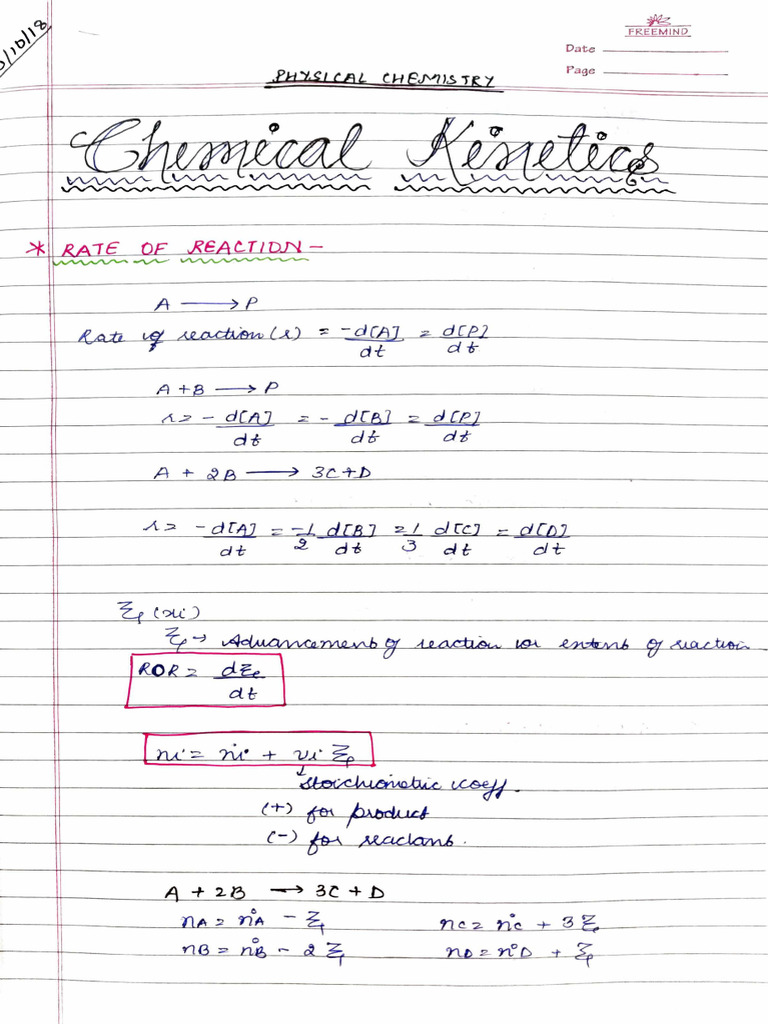 /10/18
FREEMIND
Date
Page
PHYSICAL CHEMISTRY
Chemical Kinetics
* RATE OF REACTION –
A ⟶ P
Rate of reaction (r) = -d[A]/dt = d[P]/dt
A + B ⟶ P
r = - d[A]/dt = - d[B]/dt = d[P]/dt
A + 2B ⟶ 3C + D
r = -d[A]/dt = -1/2 d[B]/dt = 1/3 d[C]/dt = d[D]/dt
ξ (xi)
ξ → Advancement of reaction or extent of reaction
ROR = dξ/dt
ni = n°i + νi ξ
↓
Stoichiometric coeff.
(+) for product
(-) for reactants.
A + 2B ⟶ 3C + D
nA = n°A - ξ nC = n°C + 3ξ
nB = n°B - 2ξ nD = n°D + ξ